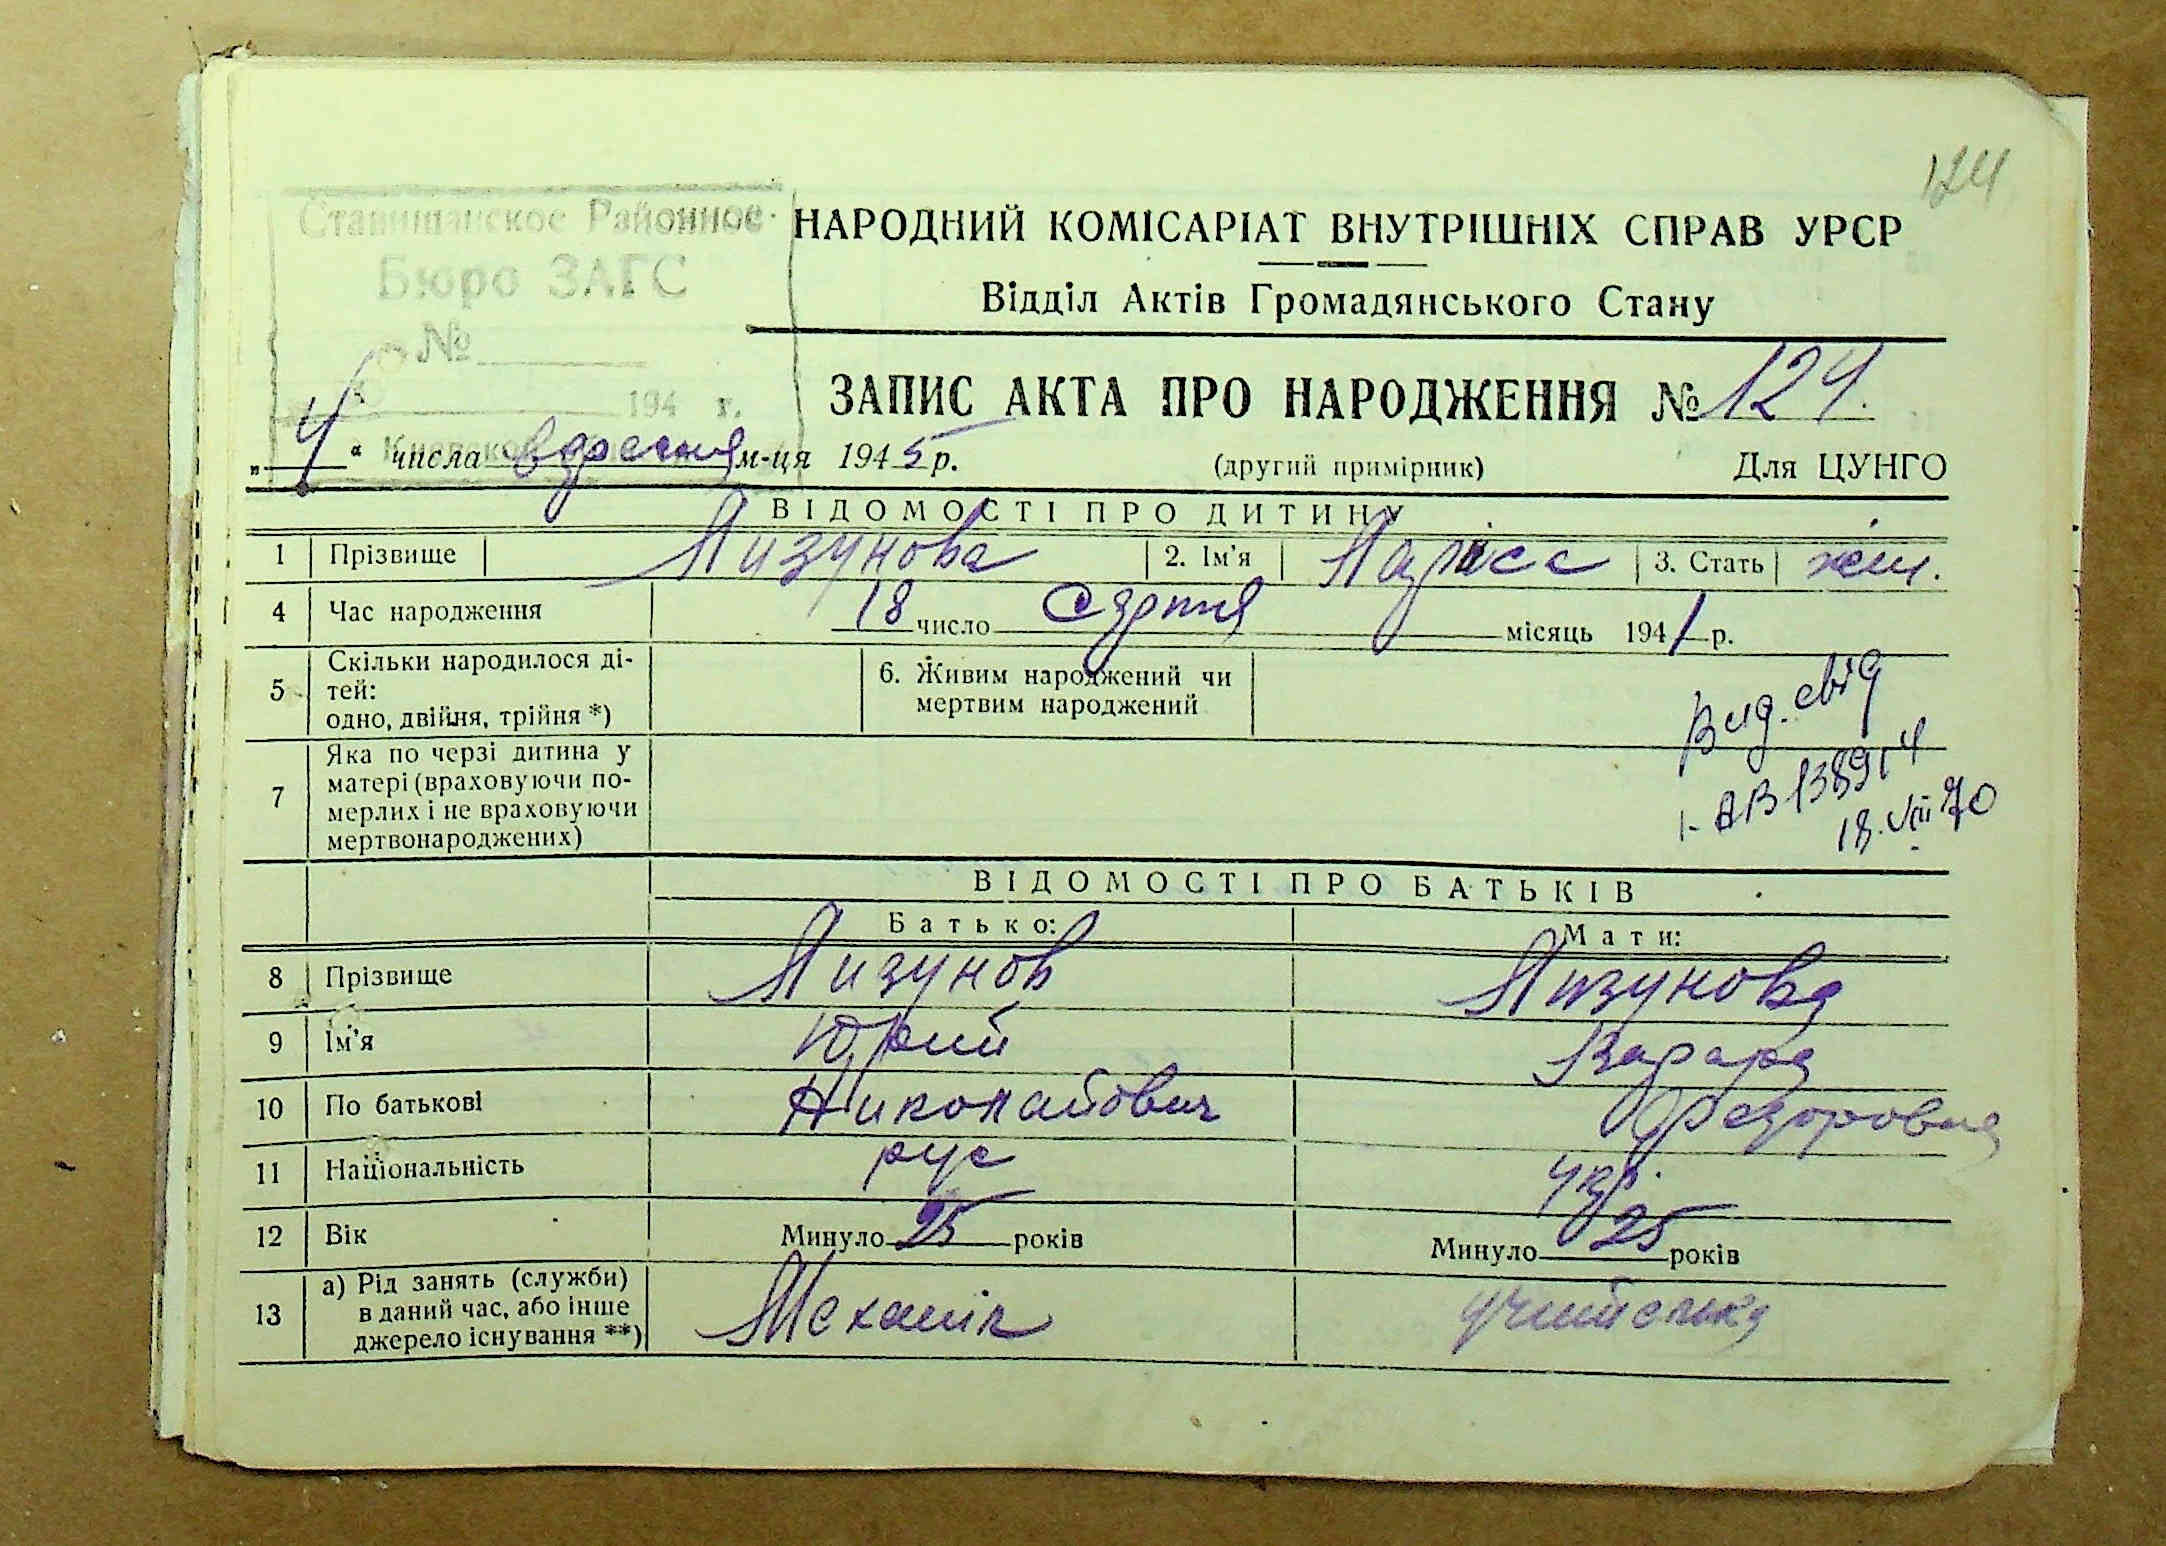 124
Ставищанское Районное
Бюро ЗАГС
№
194 г.
НАРОДНИЙ КОМІСАРІАТ ВНУТРІШНІХ СПРАВ УРСР
Відділ Актів Громадянського Стану
ЗАПИС АКТА ПРО НАРОДЖЕННЯ № 124.
„4“ числа вдресня м-ця 1945 р. (другий примірник) Для ЦУНГО
ВІДОМОСТІ ПРО ДИТИНУ
1 Прізвище Лизунова 2. Ім'я Ларіса 3. Стать жін.
4 Час народження 18 число серпня місяць 1941 р.
5 Скільки народилося ді-
тей:
одно, двійня, трійня *)
6. Живим народжений чи
мертвим народжений
Вид. свід
I-АВ 138914
18.VIII 70
7 Яка по черзі дитина у
матері (враховуючи по-
мерлих і не враховуючи
мертвонароджених)
ВІДОМОСТІ ПРО БАТЬКІВ
Батько: Мати:
8 Прізвище Лизунов Лизунова
9 Ім'я Юрий Варара
10 По батькові Николайович Федоровна
11 Національність рус укр.
12 Вік Минуло 25 років Минуло 25 років
13 а) Рід занять (служби)
в даний час, або інше
джерело існування **)
Механік учителька